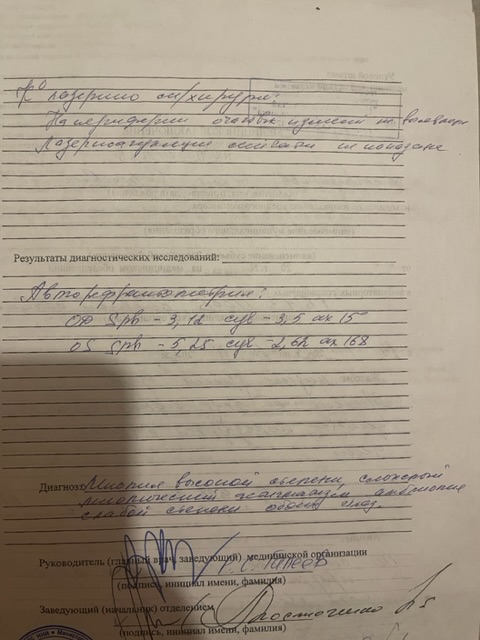 К° лазерного м/хирурга:
На периферии очагов измен не выявлено
Лазеркоагуляция сетчатки не показана
Результаты диагностических исследований:
Авторефрактометрия:
OD Sph - 3,12 cyl - 3,5 ax 15°
OS Sph - 5,25 cyl - 2,62 ax 168
Диагноз: Миопия высокой степени, сложный
миопический астигматизм амблиопия
слабой степени обоих глаз.
Руководитель (главный врач, заведующий) медицинской организации
(подпись, инициал имени, фамилия)
Заведующий (начальник) отделением
(подпись, инициал имени, фамилия)